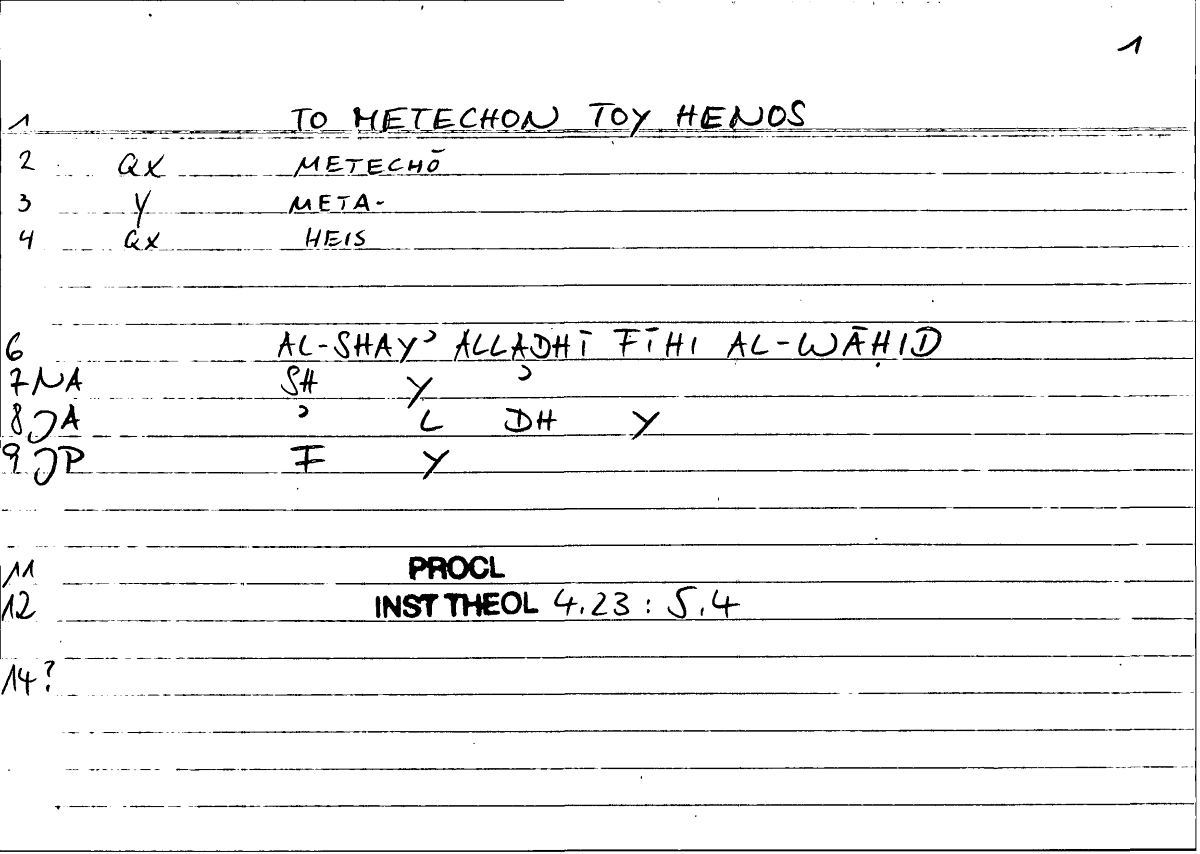 1
1 TO METECHON TOY HENOS
2 QX METECHŌ
3 Y META-
4 QX HEIS
6 AL-SHAYʾ ALLADHĪ FĪHI AL-WĀḤID
7 NA SH Y ʾ
8 JA ʾ L DH Y
9 JP F Y
11 PROCL
12 INST THEOL 4.23 : 5.4
14?